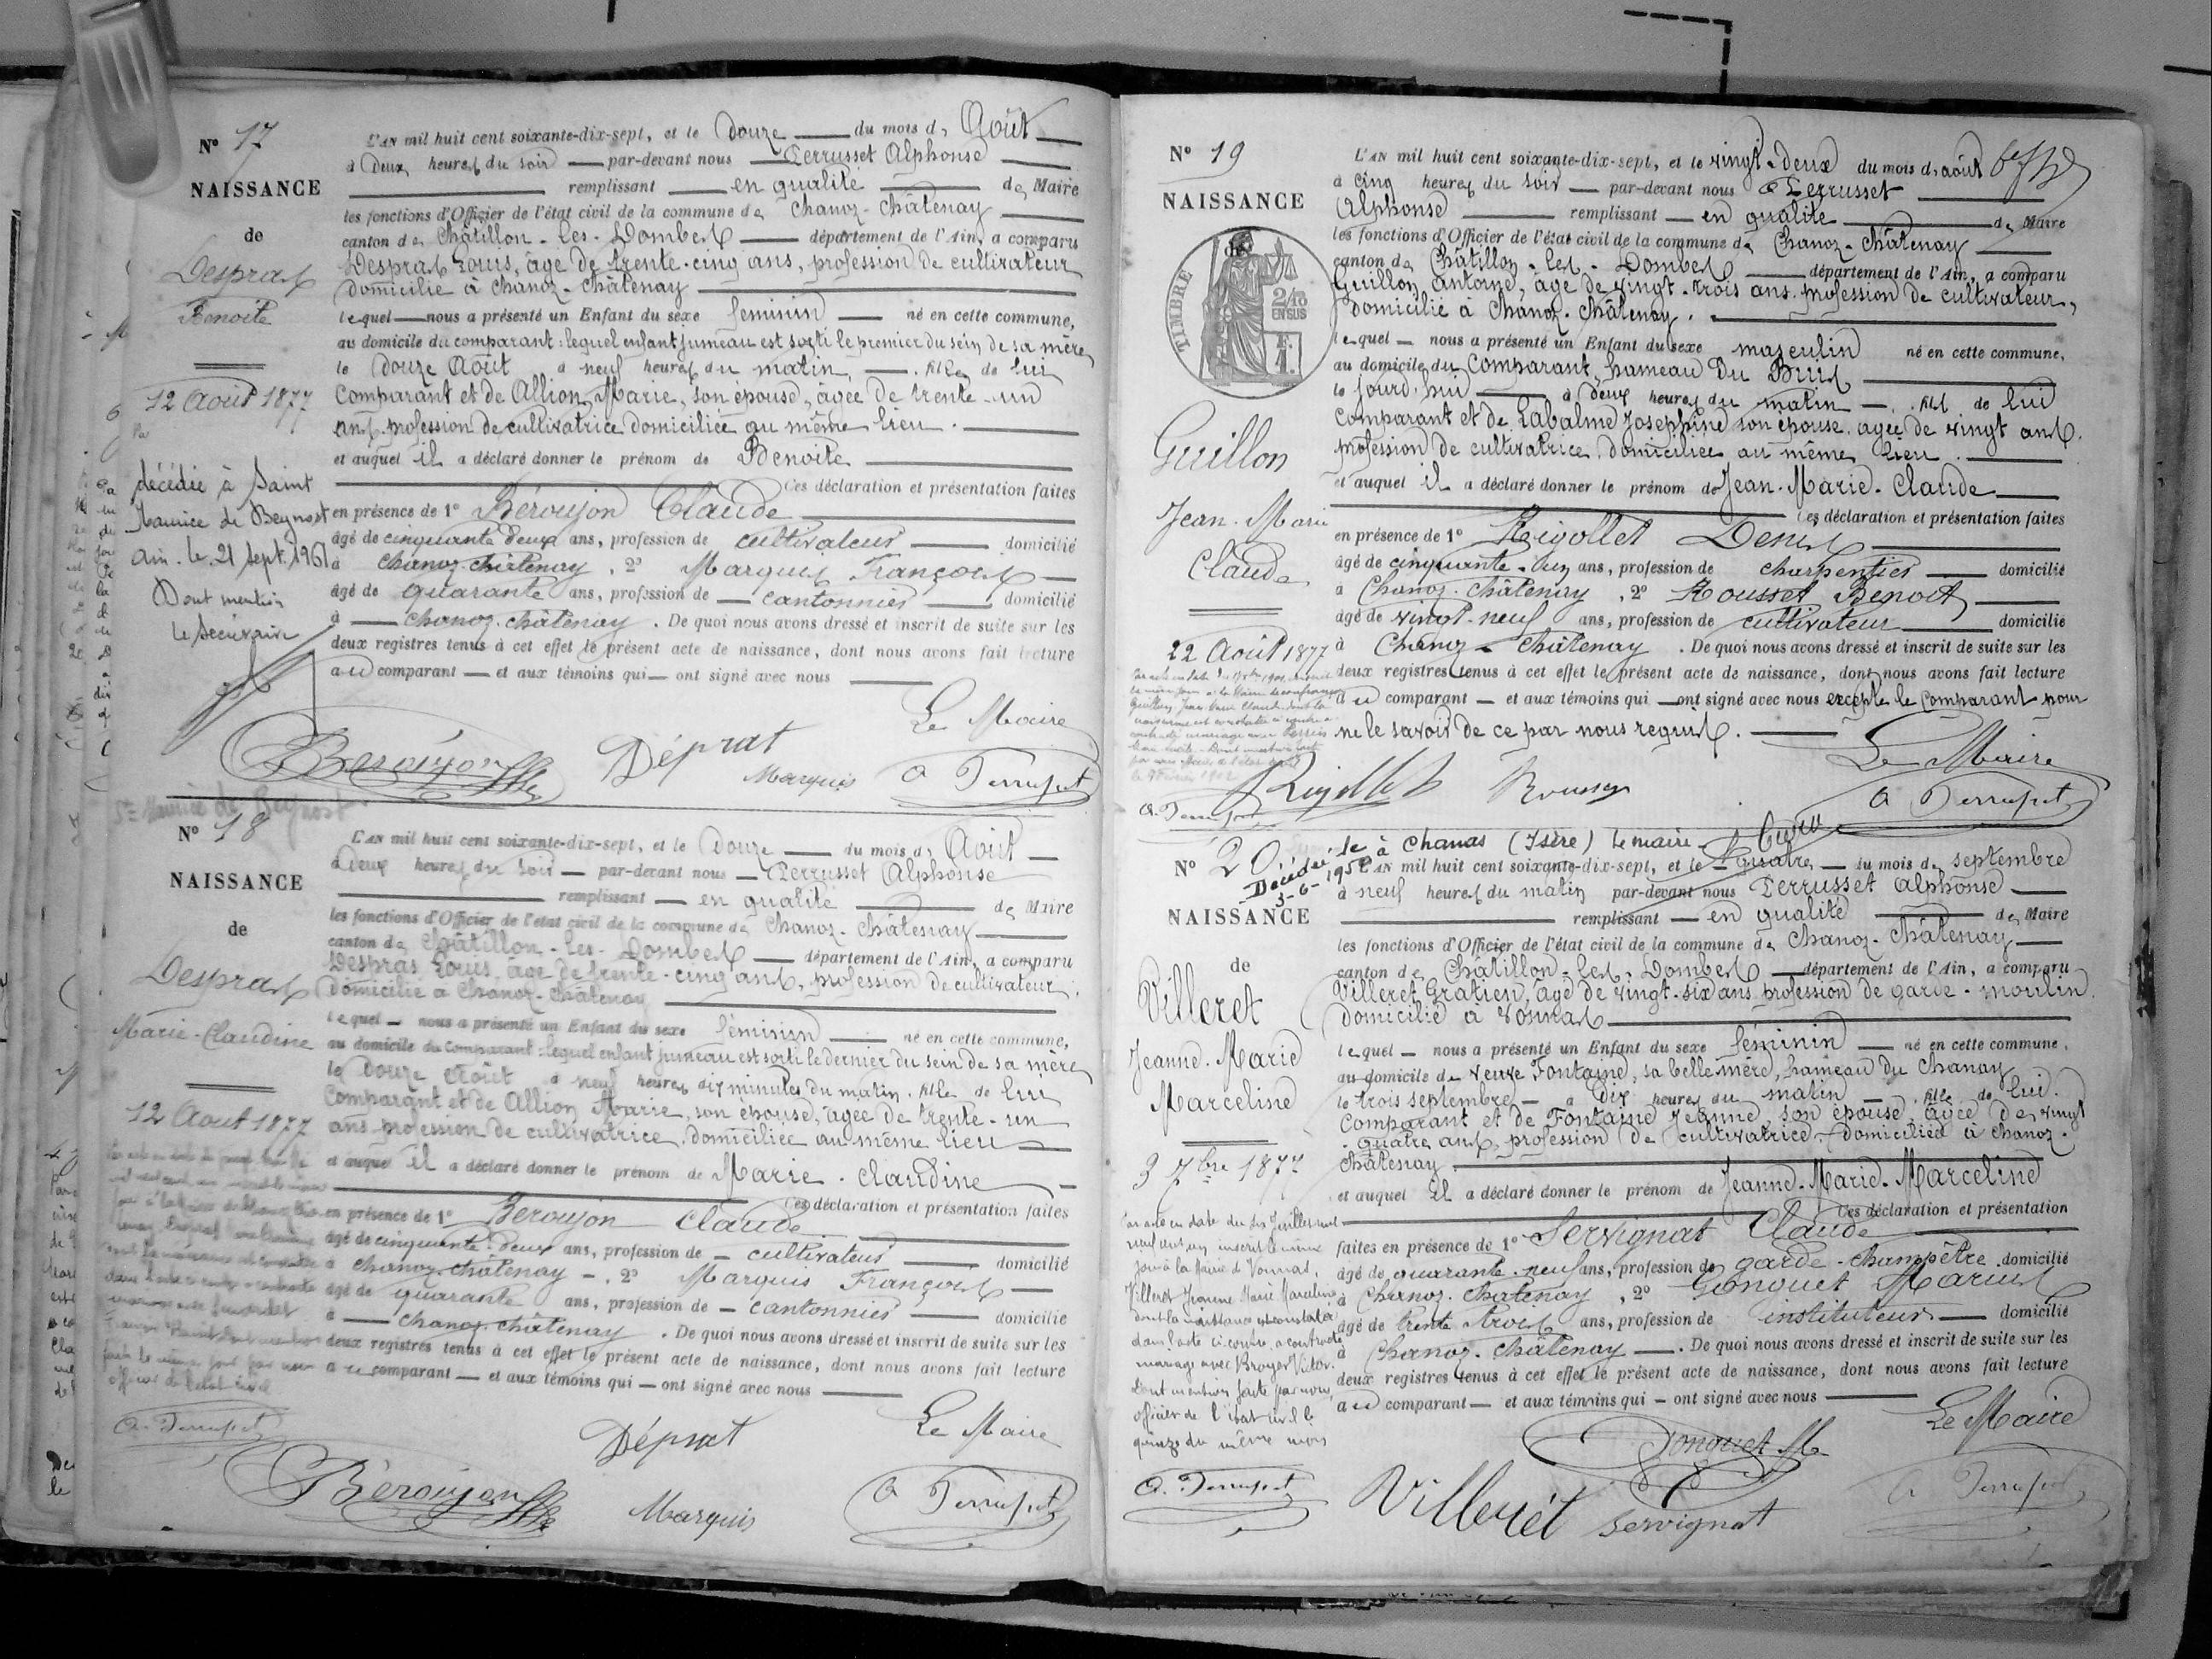 N° 17
NAISSANCE
de
Despras
Benoite
12 Août 1877
décédée à Saint
Maurice de Beynost
Ain. le 21 sept. 1961
Dont mention
le secrétaire
L'AN mil huit cent soixante-dix-sept, et le Douze du mois d' Août
à Deux heures du soir par-devant nous Perrusset Alphonse
remplissant en qualité de Maire
les fonctions d'Officier de l'état civil de la commune de Chanoz-Châtenay
canton de Châtillon-les-Dombes département de l'Ain, a comparu
Despras Louis, âgé de trente-cinq ans, profession de cultivateur
domicilié à Chanoz-Châtenay
lequel nous a présenté un Enfant du sexe féminin né en cette commune,
au domicile du comparant : lequel enfant jumeau est sorti le premier du sein de sa mère
le Douze Août à neuf heures du matin, fille de lui
Comparant et de Allion Marie, son épouse, âgée de trente-un
ans, profession de cultivatrice domiciliée au même lieu.
et auquel il a déclaré donner le prénom de Benoite
Ces déclaration et présentation faites
en présence de 1° Béroujon Claude
âgé de cinquante deux ans, profession de cultivateur domicilié
à Chanoz-Châtenay, 2° Marquis François
âgé de quarante ans, profession de cantonnier domicilié
à Chanoz-Châtenay. De quoi nous avons dressé et inscrit de suite sur les
deux registres tenus à cet effet le présent acte de naissance, dont nous avons fait lecture
au comparant et aux témoins qui ont signé avec nous
Le Maire
Beroujon Déprat Marquis A Perrusset
St Maurice de Beynost
N° 18
NAISSANCE
de
Despras
Marie-Claudine
12 Août 1877
A. Perrusset
L'AN mil huit cent soixante-dix-sept, et le Douze du mois d' Août
à Deux heures du soir par-devant nous Perrusset Alphonse
remplissant en qualité de Maire
les fonctions d'Officier de l'état civil de la commune de Chanoz-Châtenay
canton de Châtillon-les-Dombes département de l'Ain, a comparu
Despras Louis, âgé de trente-cinq ans, profession de cultivateur,
domicilié à Chanoz-Châtenay
lequel nous a présenté un Enfant du sexe féminin né en cette commune,
au domicile du Comparant : lequel enfant jumeau est sorti le dernier du sein de sa mère
le Douze Août à neuf heures dix minutes du matin, fille de lui
Comparant et de Allion Marie, son épouse, âgée de trente-un
ans, profession de cultivatrice, domiciliée au même lieu
et auquel il a déclaré donner le prénom de Marie-Claudine
Ces déclaration et présentation faites
en présence de 1° Béroujon Claude
âgé de cinquante-deux ans, profession de cultivateur domicilié
à Chanoz-Châtenay, 2° Marquis François
âgé de quarante ans, profession de cantonnier domicilié
à Chanoz-Châtenay. De quoi nous avons dressé et inscrit de suite sur les
deux registres tenus à cet effet le présent acte de naissance, dont nous avons fait lecture
au comparant et aux témoins qui ont signé avec nous
Le Maire
Déprat
Béroujon Marquis A Perrusset
N° 19
NAISSANCE
de
TIMBRE
2/10 EN SUS
F.
1.
Guillon
Jean-Marie
Claude
22 Août 1877
A. Perrusset
L'AN mil huit cent soixante-dix-sept, et le vingt-deux du mois d'août
à cinq heures du soir par-devant nous Perrusset
Alphonse remplissant en qualité de Maire
les fonctions d'Officier de l'état civil de la commune de Chanoz-Châtenay
canton de Châtillon-les-Dombes département de l'Ain, a comparu
Guillon Antoine, âgé de vingt-trois ans, profession de cultivateur,
domicilié à Chanoz-Châtenay.
lequel nous a présenté un Enfant du sexe masculin né en cette commune,
au domicile du Comparant, hameau du Buis
le jourd'hui à deux heures du matin, fils de lui
Comparant et de Labalme Joséphine son épouse, âgée de vingt ans,
profession de cultivatrice, domiciliée au même lieu.
et auquel il a déclaré donner le prénom de Jean-Marie-Claude
Ces déclaration et présentation faites
en présence de 1° Rigollet Denis
âgé de cinquante-un ans, profession de charpentier domicilié
à Chanoz-Châtenay, 2° Rousset Benoit
âgé de vingt-neuf ans, profession de cultivateur domicilié
à Chanoz-Châtenay. De quoi nous avons dressé et inscrit de suite sur les
deux registres tenus à cet effet le présent acte de naissance, dont nous avons fait lecture
au comparant et aux témoins qui ont signé avec nous excepté le Comparant pour
ne le savoir de ce par nous requis.
Le Maire
Rigollet Rousset A Perrusset
N° 20
Décédée à Chanas (Isère) le maire
3-6-1952
NAISSANCE
de
Villeret
Jeanne-Marie
Marceline
3 7bre 1877
Par acte en date du six Juillet mil
neuf cent un inscrit le même
jour à la Mairie de Vonnas,
Villeret Jeanne Marie Marceline
dont la naissance est constatée
dans l'acte ci-contre a contracté
mariage avec Broyer Victor.
Dont mention faite par nous
officier de l'état civil le
quinze du même mois
A. Perrusset
L'AN mil huit cent soixante-dix-sept, et le quatre du mois de septembre
à neuf heures du matin par-devant nous Perrusset Alphonse
remplissant en qualité de Maire
les fonctions d'Officier de l'état civil de la commune de Chanoz-Châtenay
canton de Châtillon-les-Dombes département de l'Ain, a comparu
Villeret Gratien, âgé de vingt-six ans, profession de garde-moulin
domicilié à Vonnas
lequel nous a présenté un Enfant du sexe féminin né en cette commune,
au domicile de veuve Fontaine, sa belle mère, hameau du Chanay
le trois septembre à Dix heures du matin, fille de lui
Comparant et de Fontaine Jeanne, son épouse, âgée de vingt
-quatre ans, profession de cultivatrice domiciliée à Chanoz-
Châtenay
et auquel il a déclaré donner le prénom de Jeanne-Marie-Marceline
Ces déclaration et présentation
faites en présence de 1° Servignat Claude
âgé de quarante-neuf ans, profession de garde-champêtre domicilié
à Chanoz-Châtenay, 2° Gonguet Marius
âgé de trente trois ans, profession de instituteur domicilié
à Chanoz-Châtenay. De quoi nous avons dressé et inscrit de suite sur les
deux registres tenus à cet effet le présent acte de naissance, dont nous avons fait lecture
au comparant et aux témoins qui ont signé avec nous
Le Maire
Gonguet M.
Villerét Servignat A Perrusset